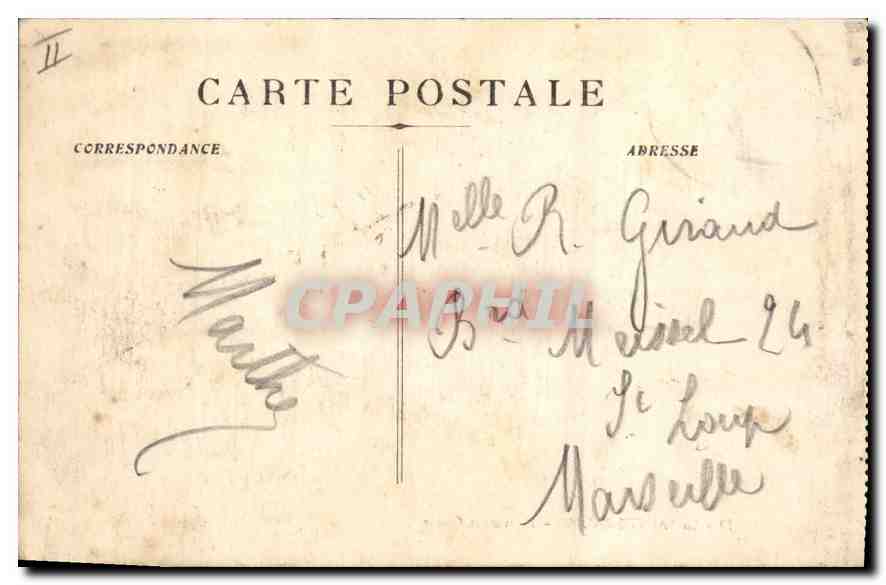 II
CARTE POSTALE
CORRESPONDANCE
ADRESSE
Melle R. Giraud
Bd 24
St Loup
Marseille
Marthe
CPAPHIL